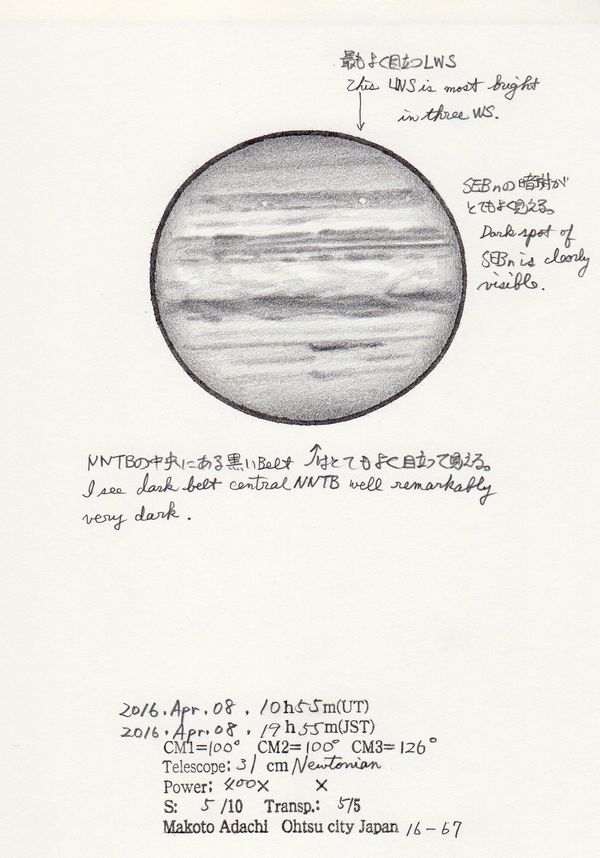 最もよく目立つLWS
This LWS is most bright
in three WS.
SEBnの暗斑が
とてもよく見える。
Dark spot of
SEBn is clearly
visible.
NNTBの中央にある黒いBelt はとてもよく目立って見える。
I see dark belt central NNTB well remarkably
very dark.
2016.Apr.08, 10h55m(UT)
2016.Apr.08, 19h55m(JST)
CM1=100° CM2=100° CM3=126°
Telescope; 31 cm Newtonian
Power; 400X X
S: 5/10 Transp.: 5/5
Makoto Adachi Ohtsu city Japan 16-67